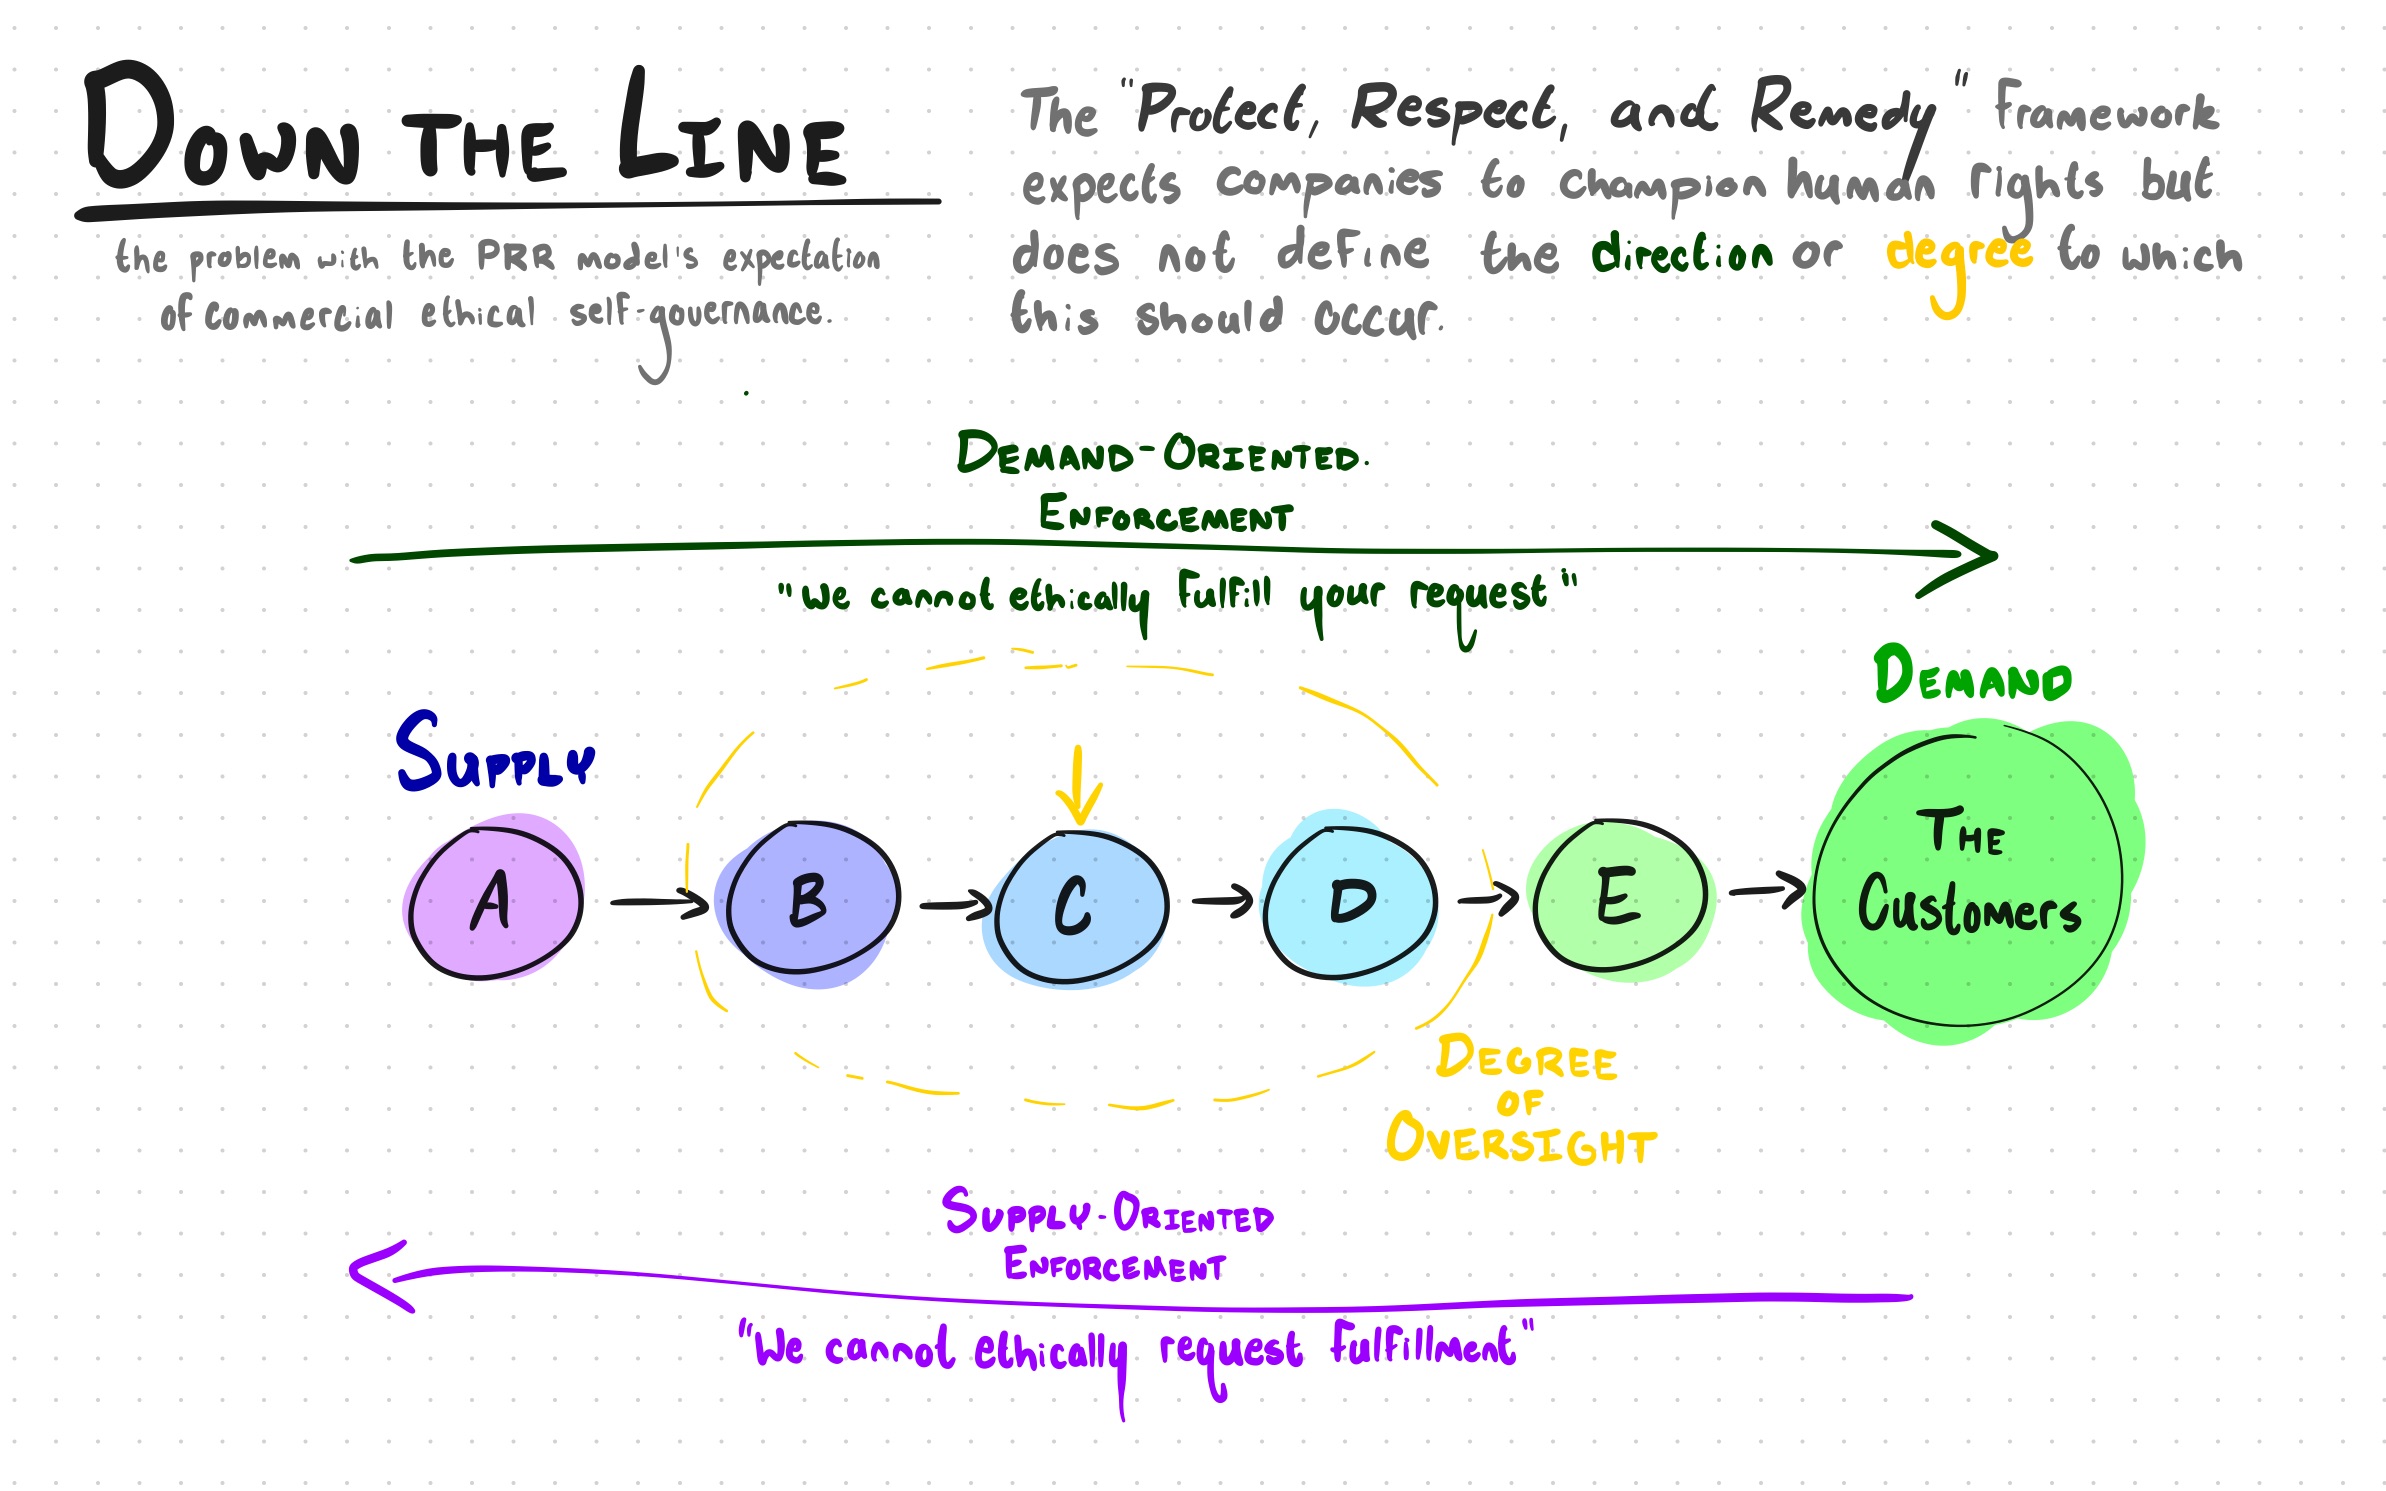 DOWN THE LINE
the problem with the PRR model's expectation
of commercial ethical self-governance.
The "Protect, Respect, and Remedy" framework
expects companies to champion human rights but
does not define the direction or degree to which
this should occur.
DEMAND-ORIENTED
ENFORCEMENT
"We cannot ethically fulfill your request"
SUPPLY
DEMAND
A
B
C
D
E
THE
Customers
DEGREE
OF
OVERSIGHT
SUPPLY-ORIENTED
ENFORCEMENT
"We cannot ethically request fulfillment"